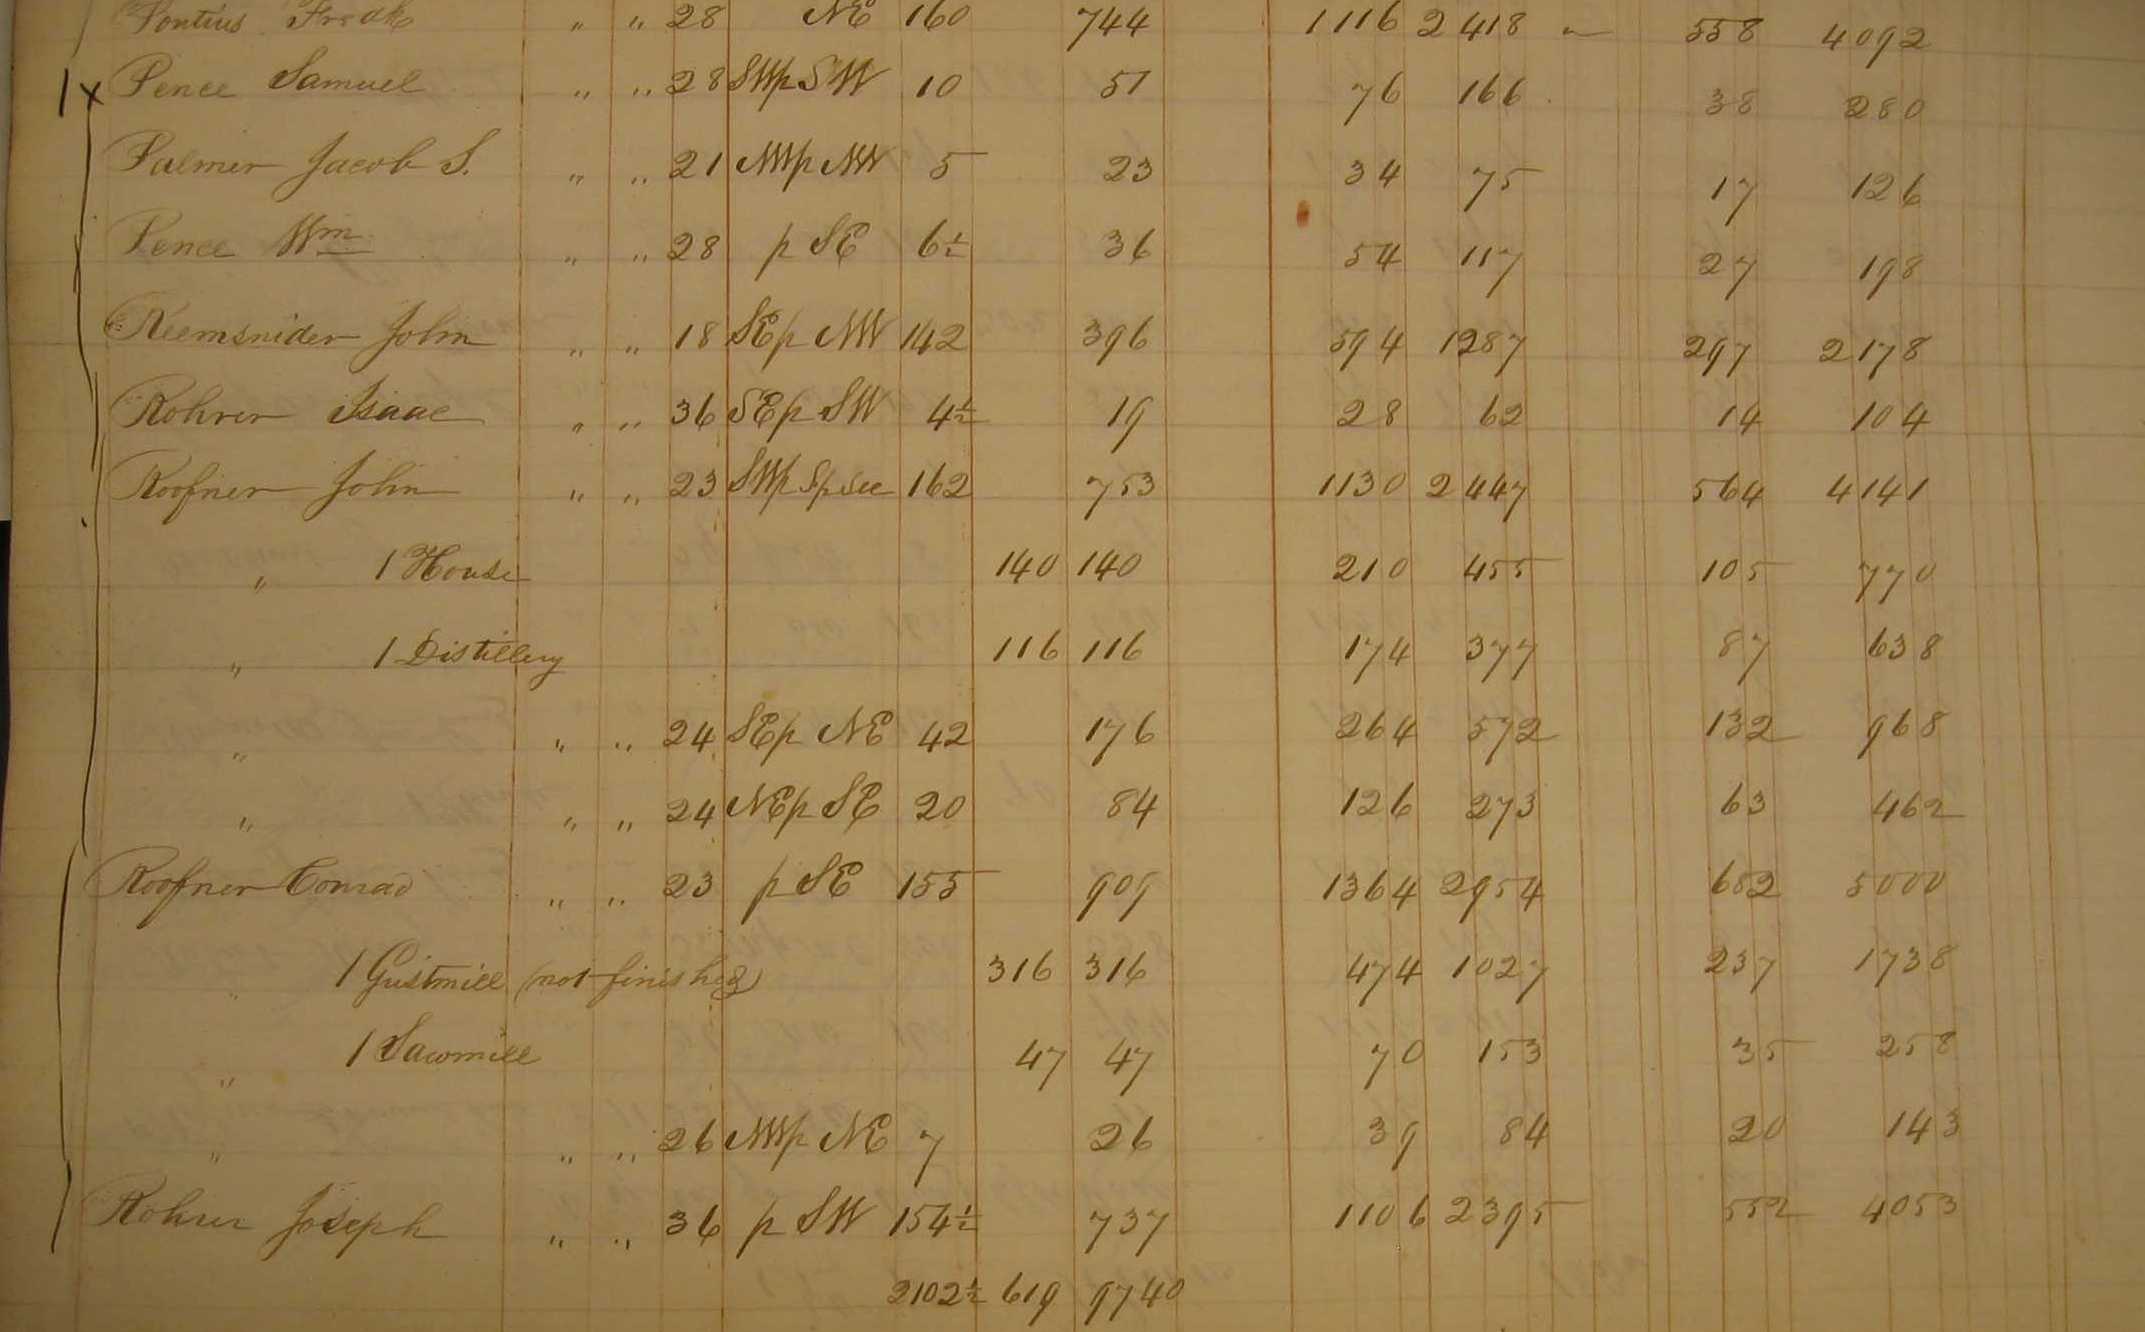 Pontius Fredk " " 28 NE 160 744 1116 2418 558 4092
1x Pence Samuel " " 28 SWp SW 10 51 76 166 38 280
Palmer Jacob S. " " 21 NWp NW 5 23 34 75 17 126
Pence Wm " " 28 p SE 6½ 36 54 117 27 198
Reemsnider John " " 18 SEp NW 142 396 594 1287 297 2178
Rohrer Isaac " " 36 SEp SW 4½ 19 28 62 14 104
Roofner John " " 23 SWp Sp Sec 162 753 1130 2447 564 4141
" 1 House 140 140 210 455 105 770
" 1 Distillery 116 116 174 377 87 638
" " " 24 SEp NE 42 176 264 572 132 968
" " " 24 NEp SE 20 84 126 273 63 462
Roofner Conrad " " 23 p SE 155 909 1364 2954 682 5000
" 1 Gristmill (not finished) 316 316 474 1027 237 1738
" 1 Sawmill 47 47 70 153 35 258
" " " 26 NWp NE 7 26 39 84 20 143
Rohrer Joseph " " 36 p SW 154½ 737 1106 2395 552 4053
2102½ 619 9740